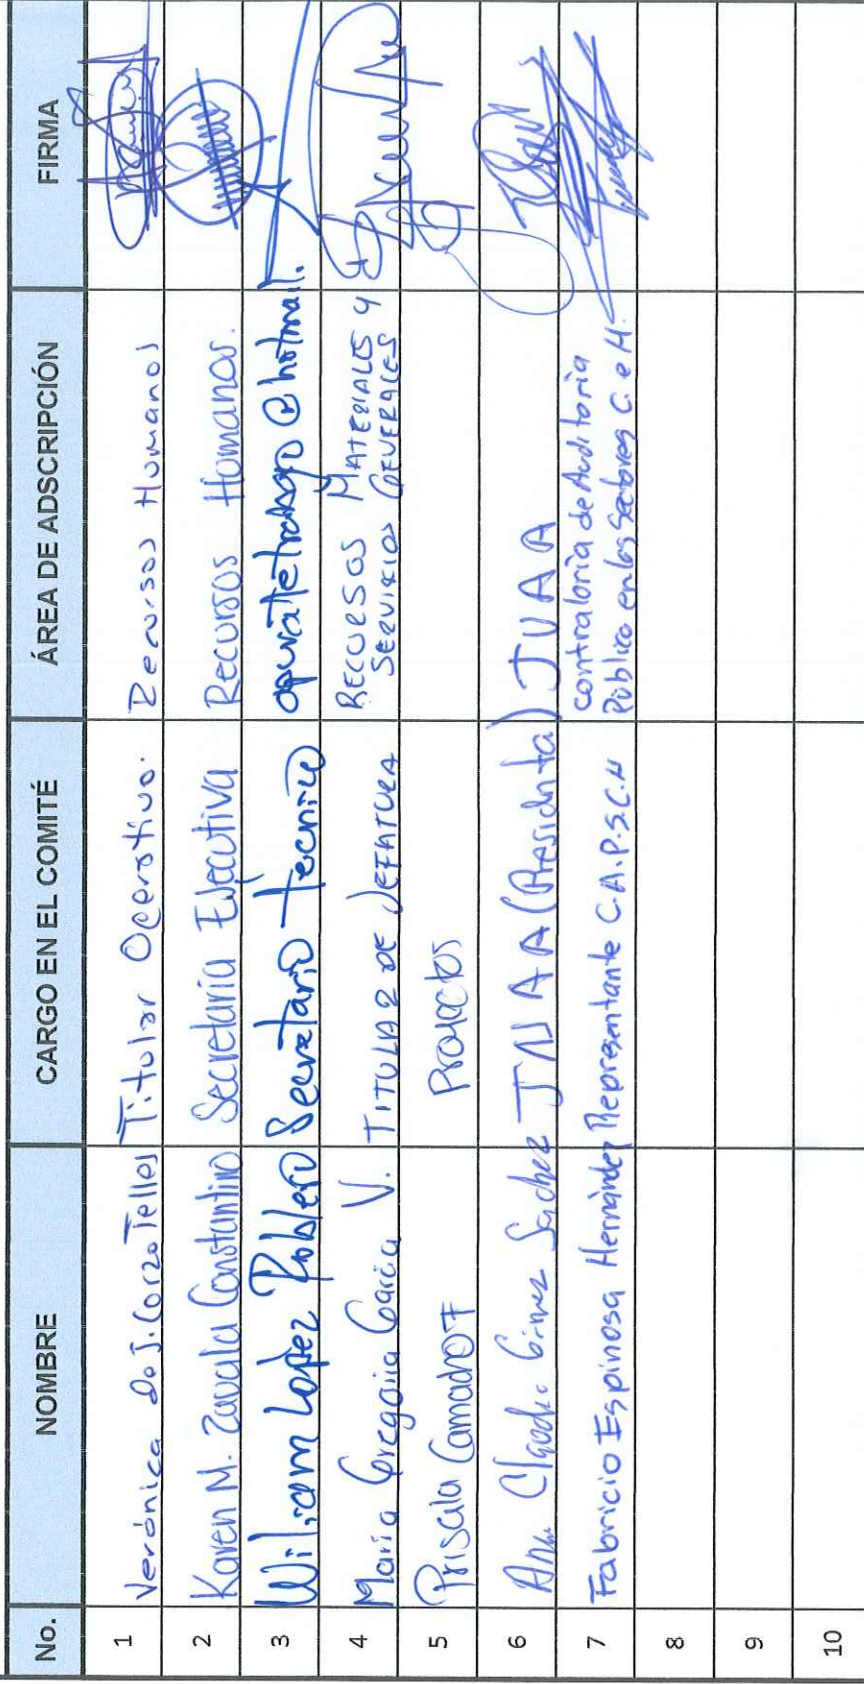 No. NOMBRE CARGO EN EL COMITÉ ÁREA DE ADSCRIPCIÓN FIRMA
1 Verónica de J. Corzo Telles Titular Operativo. Recursos Humanos
2 Karen M. Zavala Constantino Secretaría Ejecutiva Recursos Humanos.
3 William López Roblero Secretario Tecnico @hotmail.
4 María Gregoria García V. TITULAR DE JEFATURA RECURSOS MATERIALES Y
SERVICIOS GENERALES
5 Priscila Camacho F Proyectos
6 Ana Claudia Gómez Sachez (Presidenta) JUAA
7 Fabricio Espinosa Hernández Representante C.A.P.S.C.H contraloria de Auditoria
Público en los Sectores C. e H.
8
9
10